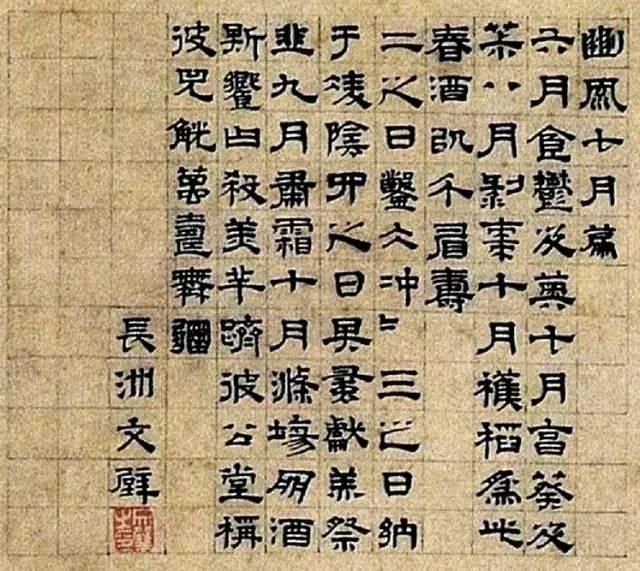 豳風七月篇
六月食鬱及薁十月亯葵及
菽八月剝棗十月穫稻為此
春酒以介眉壽
二之日鑿仌冲〻三之日納
于凌陰四之日其蚤獻羔祭
韭九月肅霜十月滌場朋酒
斯饗曰殺羔羊躋彼公堂稱
彼兕觥萬壽無疆
長洲文壁